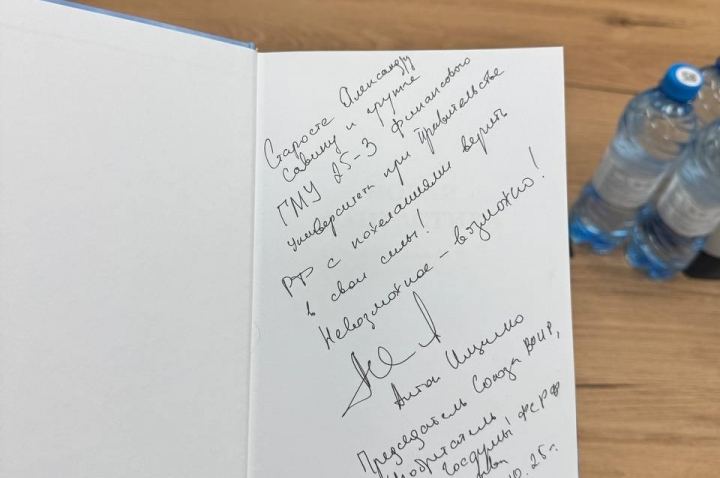 Старосте Александру
Савину и группе
ГМУ 25-3 Финансового
университета при Правительстве
РФ с пожеланиями верить
в свои силы!
Невозможное – возможно!
Антон Ищенко
Председатель Союза ВОИР,
Госдумы ФС РФ
10.25 г.